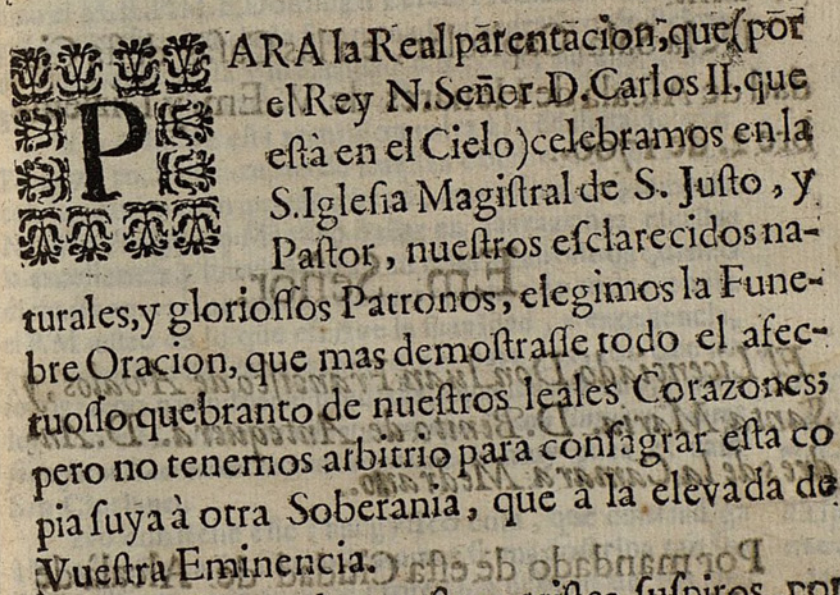 PARA la Real parentacion, que (por
el Rey N. Señor D. Carlos II. que
eſtà en el Cielo) celebramos en la
S. Igleſia Magiſtral de S. Juſto, y
Paſtor, nueſtros eſclarecidos na-
turales, y glorioſſos Patronos, elegimos la Fune-
bre Oracion, que mas demoſtraſſe todo el afec-
tuoſſo quebranto de nueſtros leales Corazones;
pero no tenemos arbitrio para conſagrar eſta co
pia ſuya à otra Soberania, que a la elevada de
Vueſtra Eminencia.
ſuſpiros, por